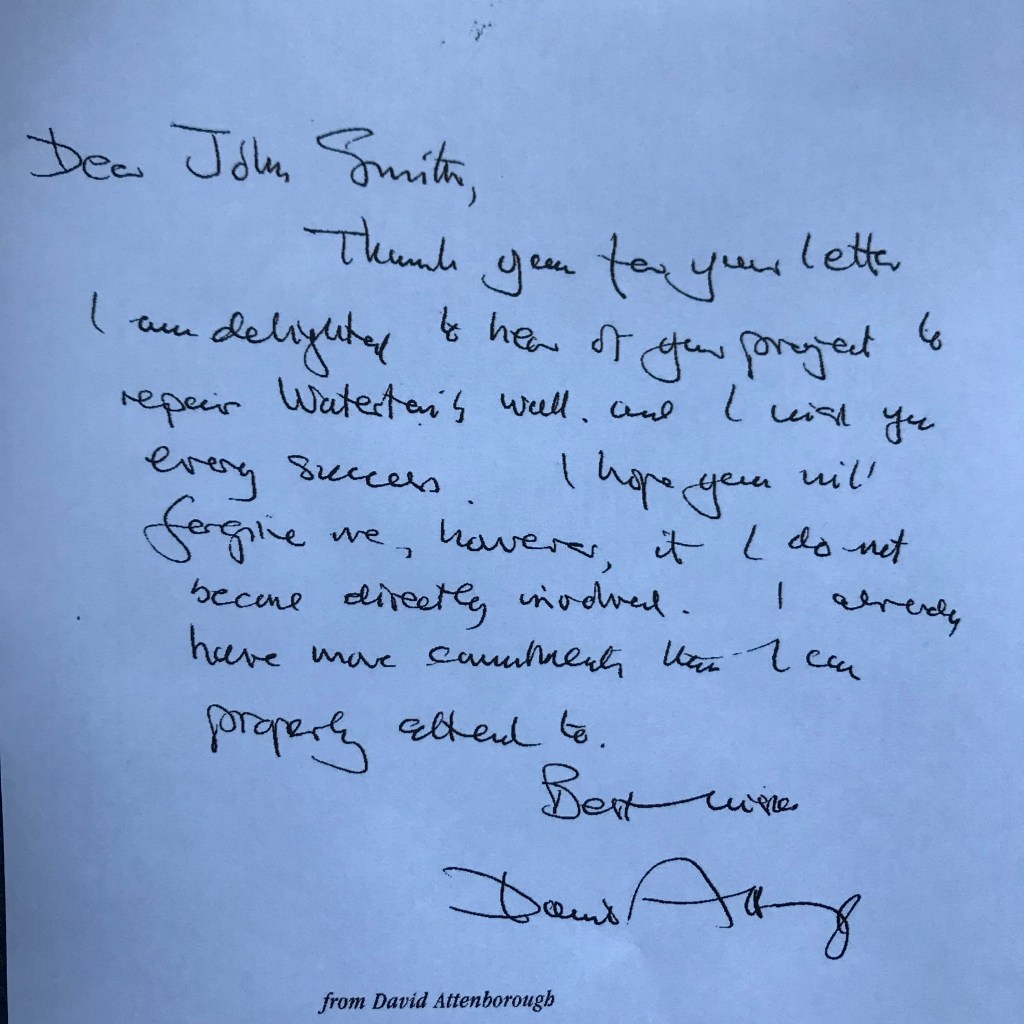 Dear John Smith,
Thank you for your letter
I am delighted to hear of your project to
repair Waterton's wall. and I wish you
every success. I hope you will
forgive me, however, if I do not
become directly involved. I already
have more commitments than I can
properly attend to.
Best wishes
David Attenborough
from David Attenborough